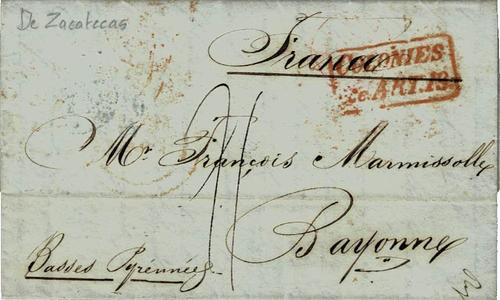 De Zacatecas
France
COLONIES
&c. ART. 13
Mr. François Marmissolle
Bayonne
Basses Pyrennées